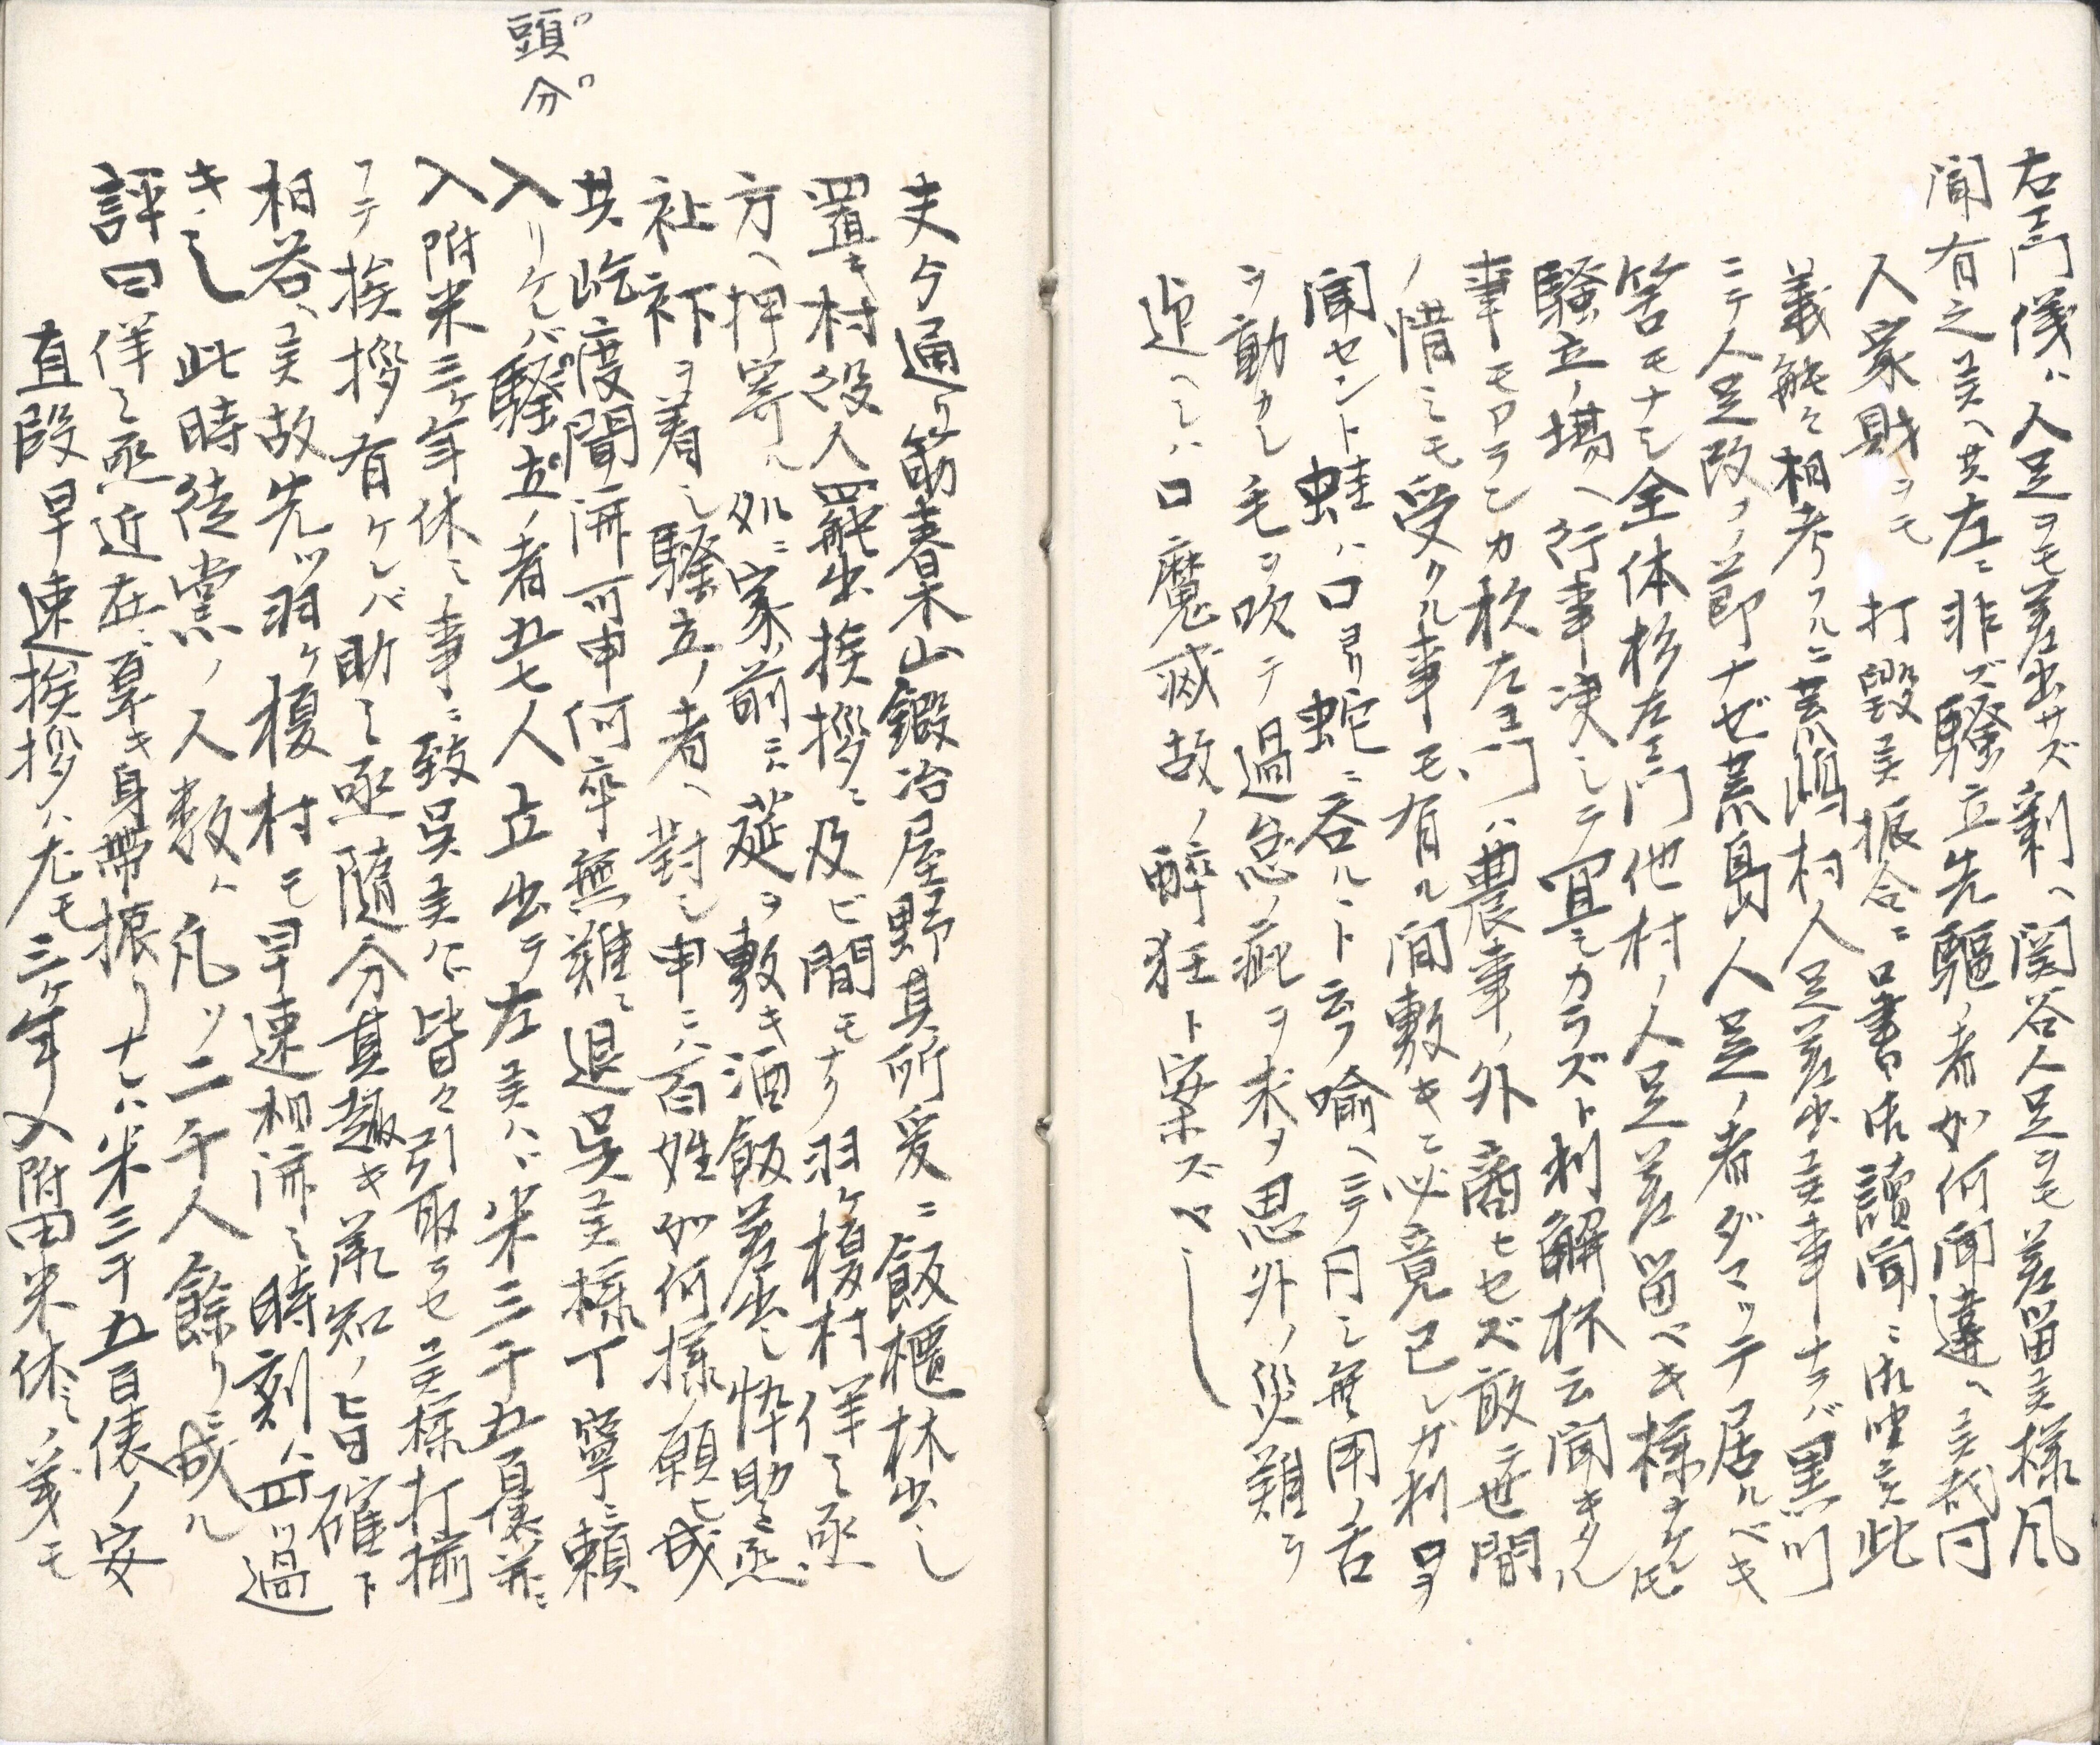 右エ門儀ハ人足ヲモ差出サズ剰ヘ関谷人足ヲモ差留候様風
聞有之候ヘ共左ニ非ズ騒立先驅ノ者如何聞違ヘ候哉同
人家財ヲモ打毀候振合ニ口書御讀聞ニ御座候此
義能々相考フルニ黒嶋村人足差出候事ナラバ黒川
ニテ人足改フノ節ナゼ黒島人足ノ者ダマツテ居ルベキ
筈モナシ全体杉左エ門他村ノ人足差留ベキ様ナケレ圧
騒立ノ場ヘ行事決シテ宜シカラズト利解杯云聞キタル
事モアランカ杉左エ門ハ農事ノ外商ヒセズ敢テ世間
ノ惜ミモ受クル事モ有ル間敷キニ必竟己レガ利口ヲ
聞セント蛙ハ口ヨリ蛇ニ呑ルヽト云フ喩ヘニテ日シ無用ノ舌
ヲ動カシ毛ヲ吹テ過怠ノ疵ヲ求タ思外ノ災難ヲ
迯ヘシハ口魔滅故ノ醉狂ト案ズベシ
夫ゟ通リ筋春木山鍛冶屋野其所爰ニ飯櫃抔出シ
置キ村役人罷出挨拶ニ及ビ間モナク羽ケ榎村佯之亟
方ヘ押寄ル処ニ家ノ前ニハ莚ヲ敷キ酒飯差出シ忰助之亟
裃ヲ着シ騒立ノ者ヘ對シ申ニハ百姓如何様ノ願ヒ成
共屹度聞濟可申何卒無難ニ退呉候様丁寧ニ頼
頭分
入リケレバ騒立ノ者五七人立出テ左候ハヾ米三千五百俵并ニ
入附米三ケ年休ミノ事ニ致呉候ハヾ皆々引取ラセ候様打揃
フテ挨拶有ケレバ助之亟隨分其趣キ承知ノ旨確ト
相答ヘ候故先ツ羽ケ榎村モ早速相濟ミ時刻ハ四ツ過
キシ此時徒黨ノ人数ハ凡ソ二千人餘リニ成ル
評曰佯之亟近在ニ稟キ身帯振リナレハ米三千五百俵ノ安
直段早速挨拶ハ尤モ三ケ年入附田米休ミノ義モ